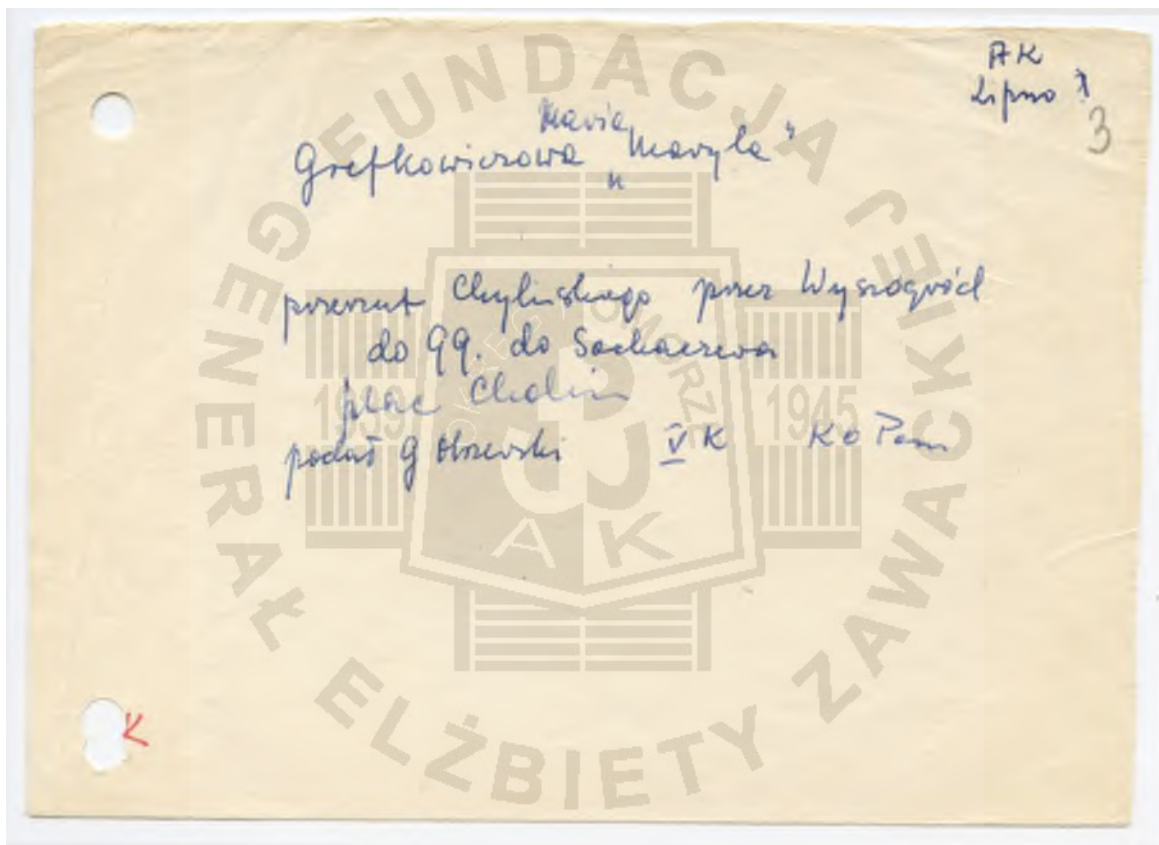 AK
Lipno
3
Maria
Grefkowiczowa "Maryla"
przerzut Chylińskiego przez Wyszogród
do GG. do Sochaczewa
płac
podał G Olszewski V K Ko Pom
K
FUNDACJA GENERAŁ ELŻBIETY ZAWACKIEJ
POMORZE
1939 1945
AK